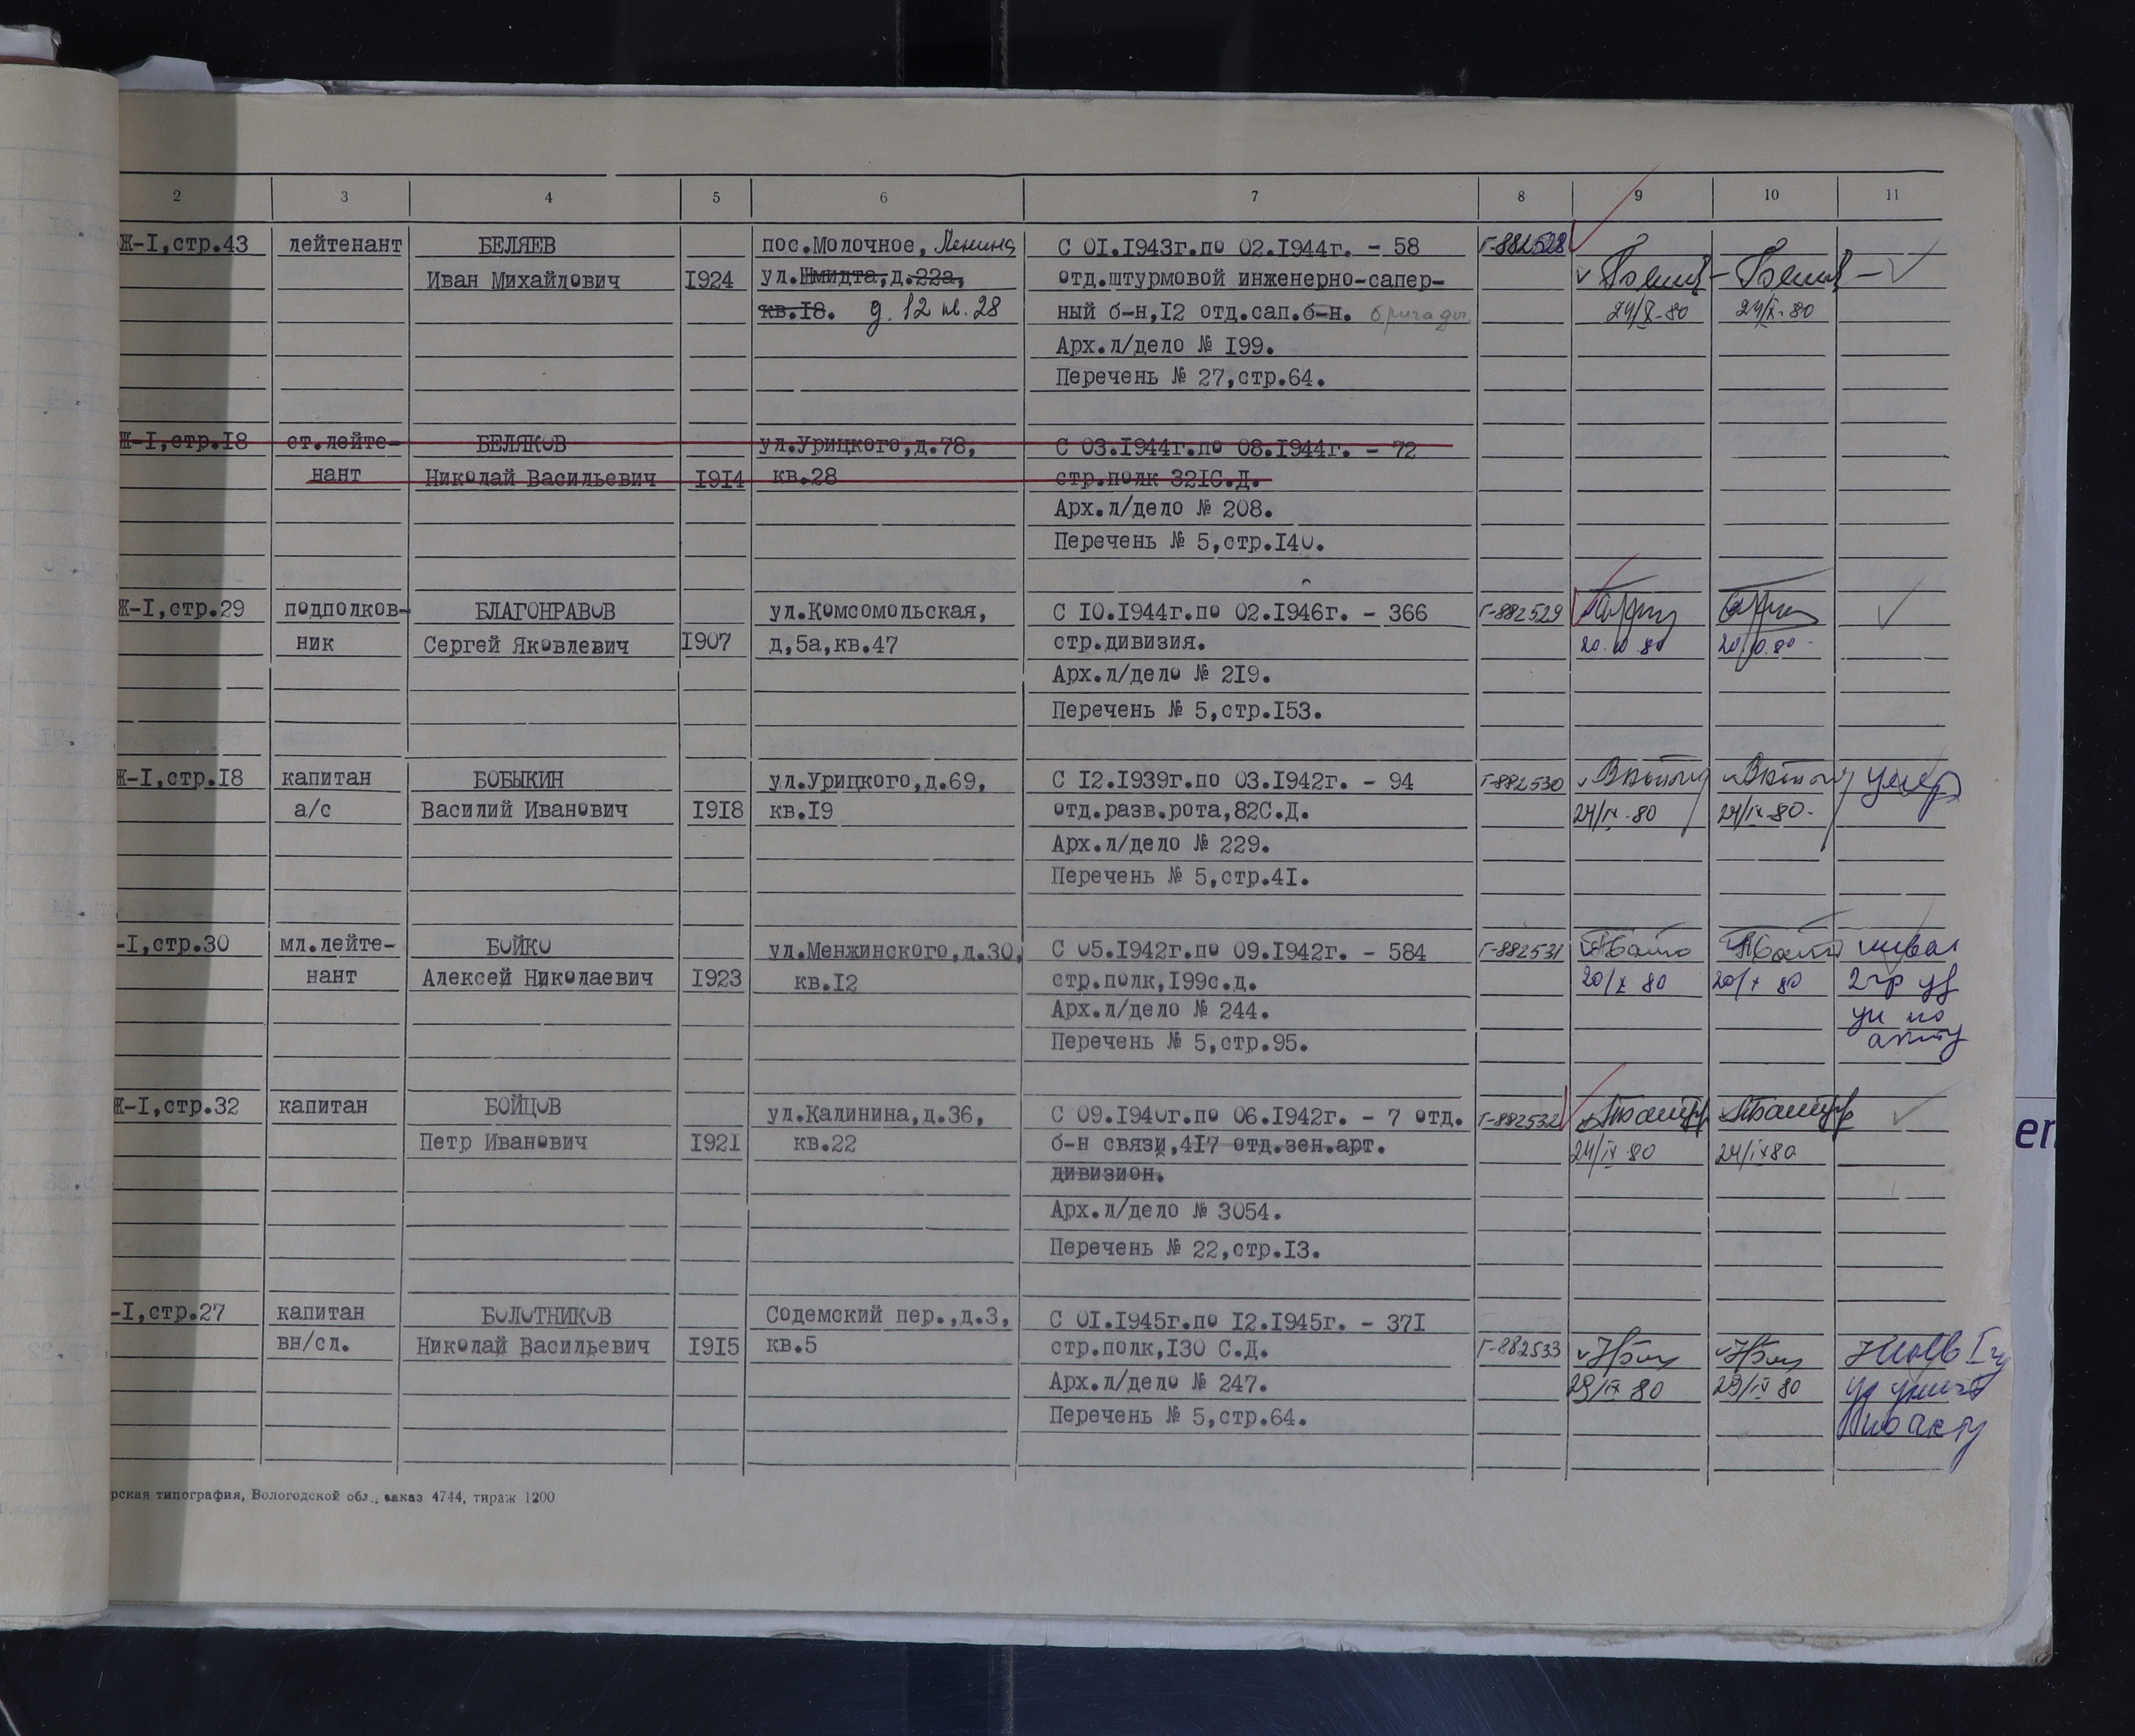 2 3 4 5 6 7 8 9 10 11
Ж-I,стр.43 лейтенант БЕЛЯЕВ пос.Молочное, Ленина С 0I.I943г.по 02.I944г. - 58 Г-882528
Иван Михайлович I924 ул.Шмидта,д.22а, отд.штурмовой инженерно-сапер-
кв.I8. д. 12 кв. 28 ный б-н,I2 отд.сап.б-н. бригады 24/X-80 24/X-80
Арх.л/дело № I99.
Перечень № 27,стр.64.
Ж-I,стр.I8 ст.лейте- БЕЛЯКОВ ул.Урицкого,д.78, С 03.I944г.по 08.I944г. - 72
нант Николай Васильевич I9I4 кв.28 стр.полк 32IС.Д.
Арх.л/дело № 208.
Перечень № 5,стр.I40.
Ж-I,стр.29 подполков- БЛАГОНРАВОВ ул.Комсомольская, С I0.I944г.по 02.I946г. - 366 Г-882529
ник Сергей Яковлевич I907 д,5а,кв.47 стр.дивизия. 20.10.80 20.10.80
Арх.л/дело № 2I9.
Перечень № 5,стр.I53.
Ж-I,стр.I8 капитан БОБЫКИН ул.Урицкого,д.69, С I2.I939г.по 03.I942г. - 94 Г-882530 умер
а/с Василий Иванович I9I8 кв.I9 отд.разв.рота,82С.Д. 24/IX-80 24/IX-80
Арх.л/дело № 229.
Перечень № 5,стр.4I.
-I,стр.30 мл.лейте- БОЙКО ул.Менжинского,д.30, С 05.I942г.по 09.I942г. - 584 Г-882531 инвал
нант Алексей Николаевич I923 кв.I2 стр.полк,I99с.д. 20/X 80 20/X 80 2 гр уд
Арх.л/дело № 244. ун по
Перечень № 5,стр.95. акту
Ж-I,стр.32 капитан БОЙЦОВ ул.Калинина,д.36, С 09.I940г.по 06.I942г. - 7 отд. Г-882532
Петр Иванович I92I кв.22 б-н связи,4I7 отд.зен.арт. 24/IX 80 24/IX 80
дивизион.
Арх.л/дело № 3054.
Перечень № 22,стр.I3.
-I,стр.27 капитан БОЛОТНИКОВ Содемский пер.,д.3, С 0I.I945г.по I2.I945г. - 37I
вн/сл. Николай Васильевич I9I5 кв.5 стр.полк,I30 С.Д. Г-882533
Арх.л/дело № 247. 29/IX 80 29/IX 80
Перечень № 5,стр.64. по акту
рская типография, Вологодской обл., заказ 4744, тираж 1200
en